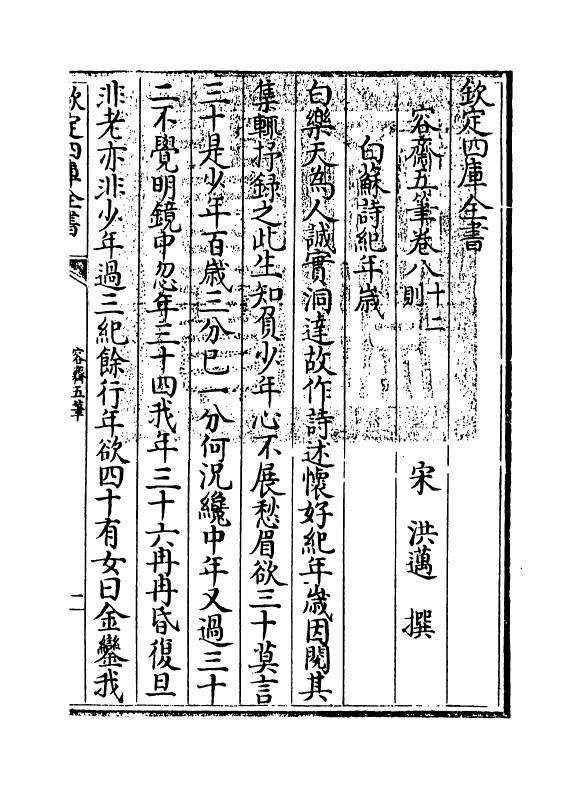 欽定四庫全書
容齋五筆卷八十二則
宋 洪邁 撰
白蘇詩紀年歲
白樂天為人誠實洞達故作詩述懷好紀年歲因閱其
集輒抒録之此生知負少年心不展愁眉欲三十莫言
三十是少年百歲三分已一分何況纔中年又過三十
二不覺明鏡中忽年三十四我年三十六冉冉昏復旦
非老亦非少年過三紀餘行年欲四十有女曰金鑾我
欽定四庫全書
容齋五筆
一